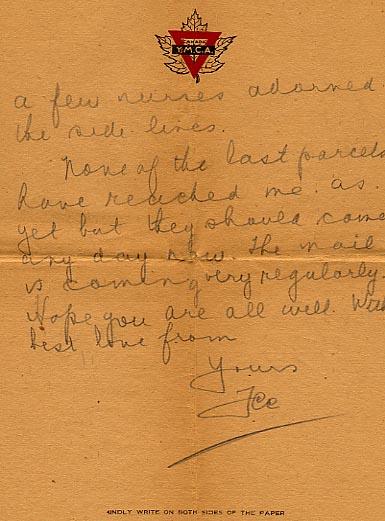 CANADIAN
Y.M.C.A.
a few nurses adorned
the side lines.
None of the last parcels
have reached me as
yet but they should come
any day now. The mail
is coming very regularly.
Hope you are all well. With
best love from
Yours
KINDLY WRITE ON BOTH SIDES OF THE PAPER